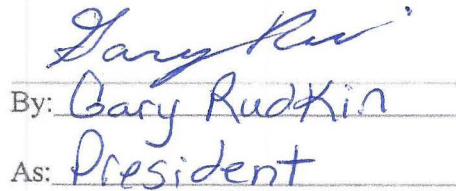 Gary Rudkin
By: Gary Rudkin
As: President